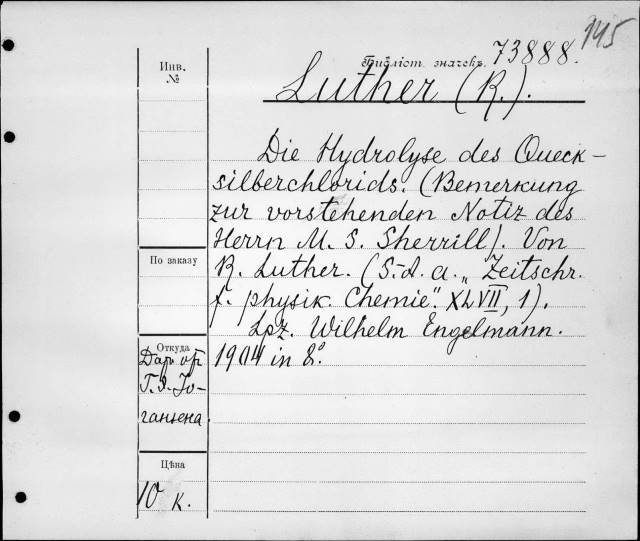 145
Библіот. значекъ. 73888.
Инв.
№
Luther (R.).
Die Hydrolyse des Queck-
silberchlorids. (Bemerkung
zur vorstehenden Notiz des
Herrn M. S. Sherrill). Von
По заказу
R. Luther. (S.-A. a. „Zeitschr.
f. physik. Chemie". XLVII, 1).
Lpz. Wilhelm Engelmann.
1904 in 8°.
Откуда
Даръ отъ
Г. Я. Іо-
гансена.
Цѣна
10 к.